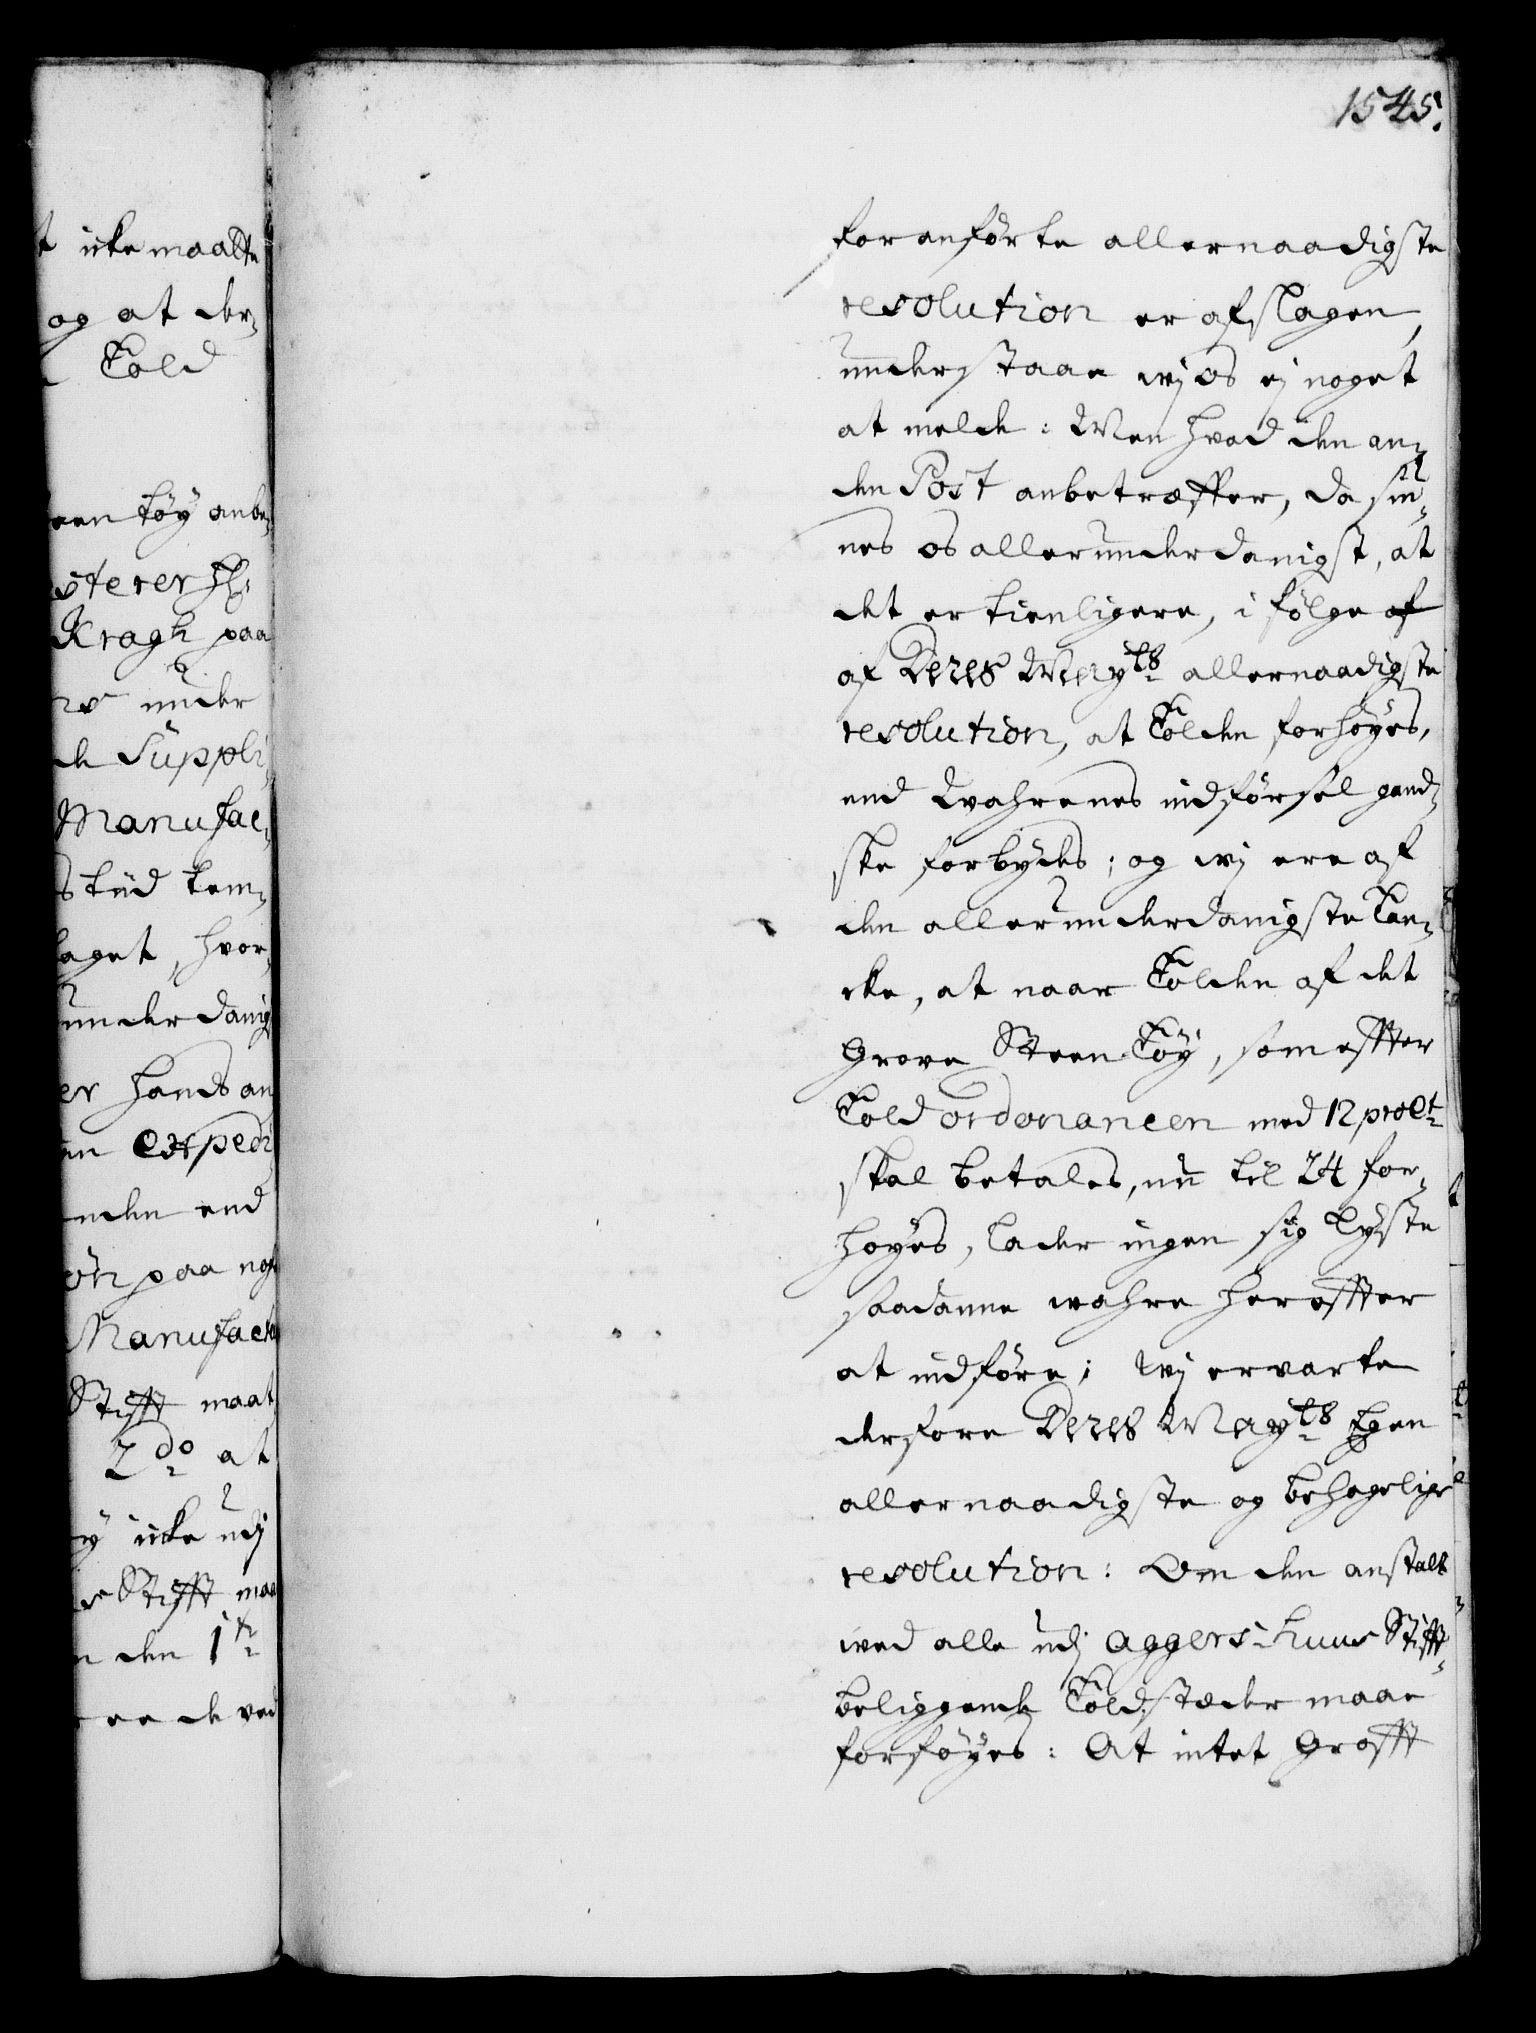 t icke maatte
og at der¬
Told
een töy anbe¬
sterer H:
Kragh paa
under
de Suppli¬
Manufac¬
stüd kom¬
laget, hvor¬
underdanig
er hands an
en expedi
enden end
ön paa nog
Manufactu
Stifft maat
2do at
y icke udj
Stifft maa
den 1te
ere de ved
1545.
foranförte allernaadigste
resolution er afslagen,
understaae wj os ej noget
at melde: Men hvad den an¬
den Post anbetræffer, da sÿ¬
nes os allerunderdanigst, at
det er tienligere, i fölge af
af Deres Maÿts allernaadigste
resolution, at Tolden forhöyes,
end Wahrenes indförsel gand¬
ske forbydes; og wj ere af
den allerunderdanigste Tan¬
cke, at naar Tolden af det
Grove Steen Töy, som effter
Told ordonancen med 12 proCt
skal betales, nu til 24 for¬
höyes, lader ingen sig lyste
saadanne wahre hereffter
at indföre; Wj ervarte
derfore Deres Maÿts Egen
allernaadigste og behagelige
resolution: Om den anstalt
wed alle udj Aggershuus Stifft
beliggende Toldstæder maae
forföyes: At intet Grofft